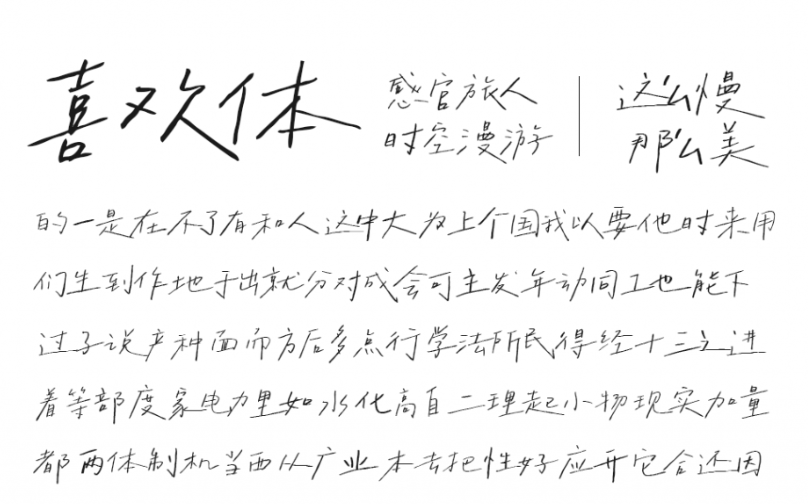 喜欢体
感官旅人
时空漫游
这么慢
那么美
的一是在不了有和人这中大为上个国我以要他时来用
们生到作地于出就分对成会可主发年动同工也能下
过子说产种面而方后多点行学法所民得经十三之进
着等部度家电力里如水化高自二理起小物现实加量
都两体制机当西从广业本去把性好应开它合还因